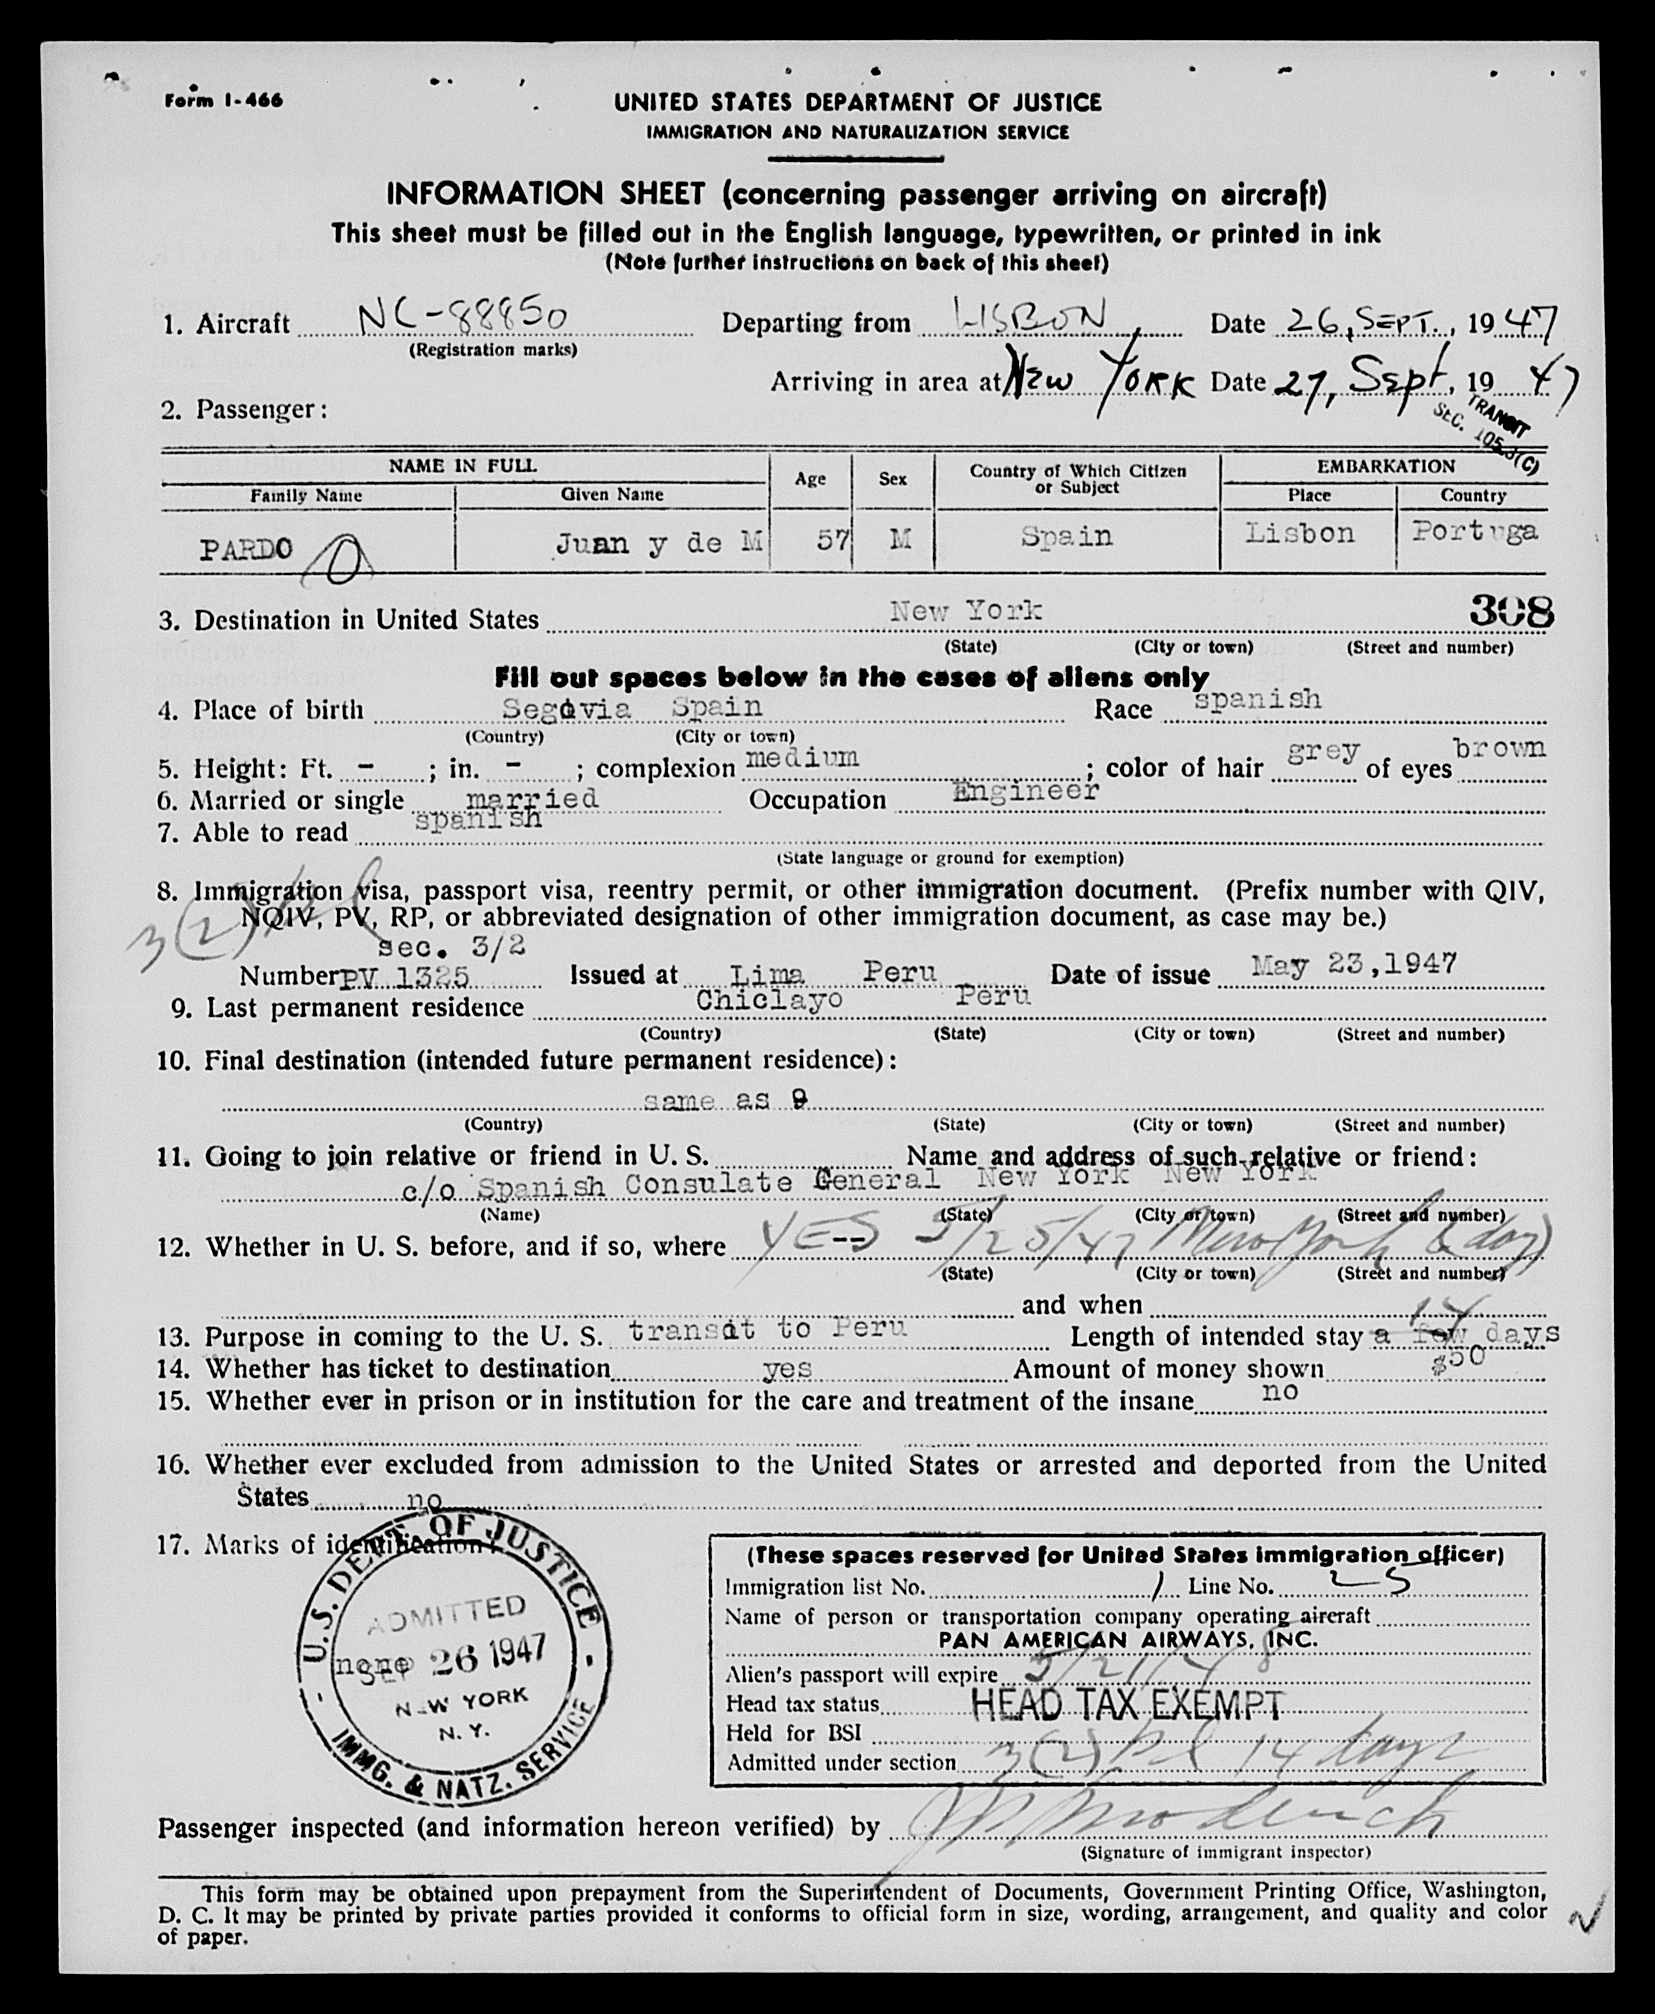 Form I-466
UNITED STATES DEPARTMENT OF JUSTICE
IMMIGRATION AND NATURALIZATION SERVICE
INFORMATION SHEET (concerning passenger arriving on aircraft)
This sheet must be filled out in the English language, typewritten, or printed in ink
(Note further instructions on back of this sheet)
1. Aircraft NC-88850 Departing from LISBON Date 26, SEPT., 1947
(Registration marks)
Arriving in area at New York Date 27, Sept, 1947
2. Passenger:
TRANSIT
SEC. 105.3(C)
NAME IN FULL Age Sex Country of Which Citizen or Subject EMBARKATION
Family Name Given Name Place Country
PARDO Juan y de M 57 M Spain Lisbon Portuga
3. Destination in United States New York 308
(State) (City or town) (Street and number)
Fill out spaces below in the cases of aliens only
4. Place of birth Segovia Spain Race spanish
(Country) (City or town)
5. Height: Ft. - ; in. - ; complexion medium ; color of hair grey of eyes brown
6. Married or single married Occupation Engineer
7. Able to read spanish
(State language or ground for exemption)
8. Immigration visa, passport visa, reentry permit, or other immigration document. (Prefix number with QIV,
NQIV, PV, RP, or abbreviated designation of other immigration document, as case may be.)
3(2)
sec. 3/2
Number PV 1325 Issued at Lima Peru Date of issue May 23,1947
9. Last permanent residence Chiclayo Peru
(Country) (State) (City or town) (Street and number)
10. Final destination (intended future permanent residence):
same as 9
(Country) (State) (City or town) (Street and number)
11. Going to join relative or friend in U. S. Name and address of such relative or friend:
c/o Spanish Consulate General New York New York
(Name) (State) (City or town) (Street and number)
12. Whether in U. S. before, and if so, where YES 5/25/47 New York
(State) (City or town) (Street and number)
and when
13. Purpose in coming to the U. S. transit to Peru Length of intended stay a few 14 days
14. Whether has ticket to destination yes Amount of money shown $50
15. Whether ever in prison or in institution for the care and treatment of the insane no
16. Whether ever excluded from admission to the United States or arrested and deported from the United
States no
17. Marks of identification
none
U.S. DEPT. OF JUSTICE
ADMITTED
SEP 26 1947
NEW YORK
N. Y.
IMMG. & NATZ. SERVICE
(These spaces reserved for United States immigration officer)
Immigration list No. 1 Line No. 25
Name of person or transportation company operating aircraft
PAN AMERICAN AIRWAYS, INC.
Alien's passport will expire 5/21/48
Head tax status HEAD TAX EXEMPT
Held for BSI
Admitted under section 3(2) 14 days
Passenger inspected (and information hereon verified) by
(Signature of immigrant inspector)
This form may be obtained upon prepayment from the Superintendent of Documents, Government Printing Office, Washington,
D. C. It may be printed by private parties provided it conforms to official form in size, wording, arrangement, and quality and color
of paper.